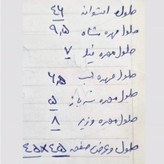 طول استوانه ۴۶
طول مهره شاه ۹,۵
طول مهره فیل ۷
طول مهره اسب ۶,۵
طول مهره سرباز ۵
طول مهره وزیر ۸
طول و عرض صفحه ۴۵×۴۵